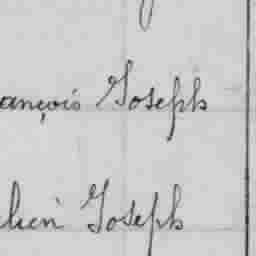 ançois Joseph
lien Joseph